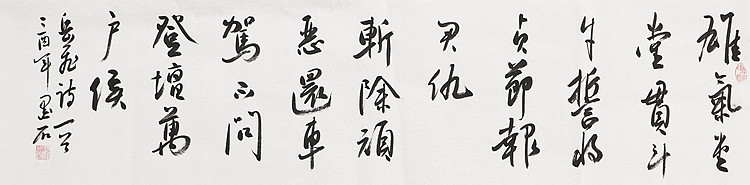 雄氣堂
堂貫斗
牛誓將
貞節報
君仇
斬除頑
惡還車
駕不問
登壇萬
戶侯
岳飛詩一首
酉年墨石